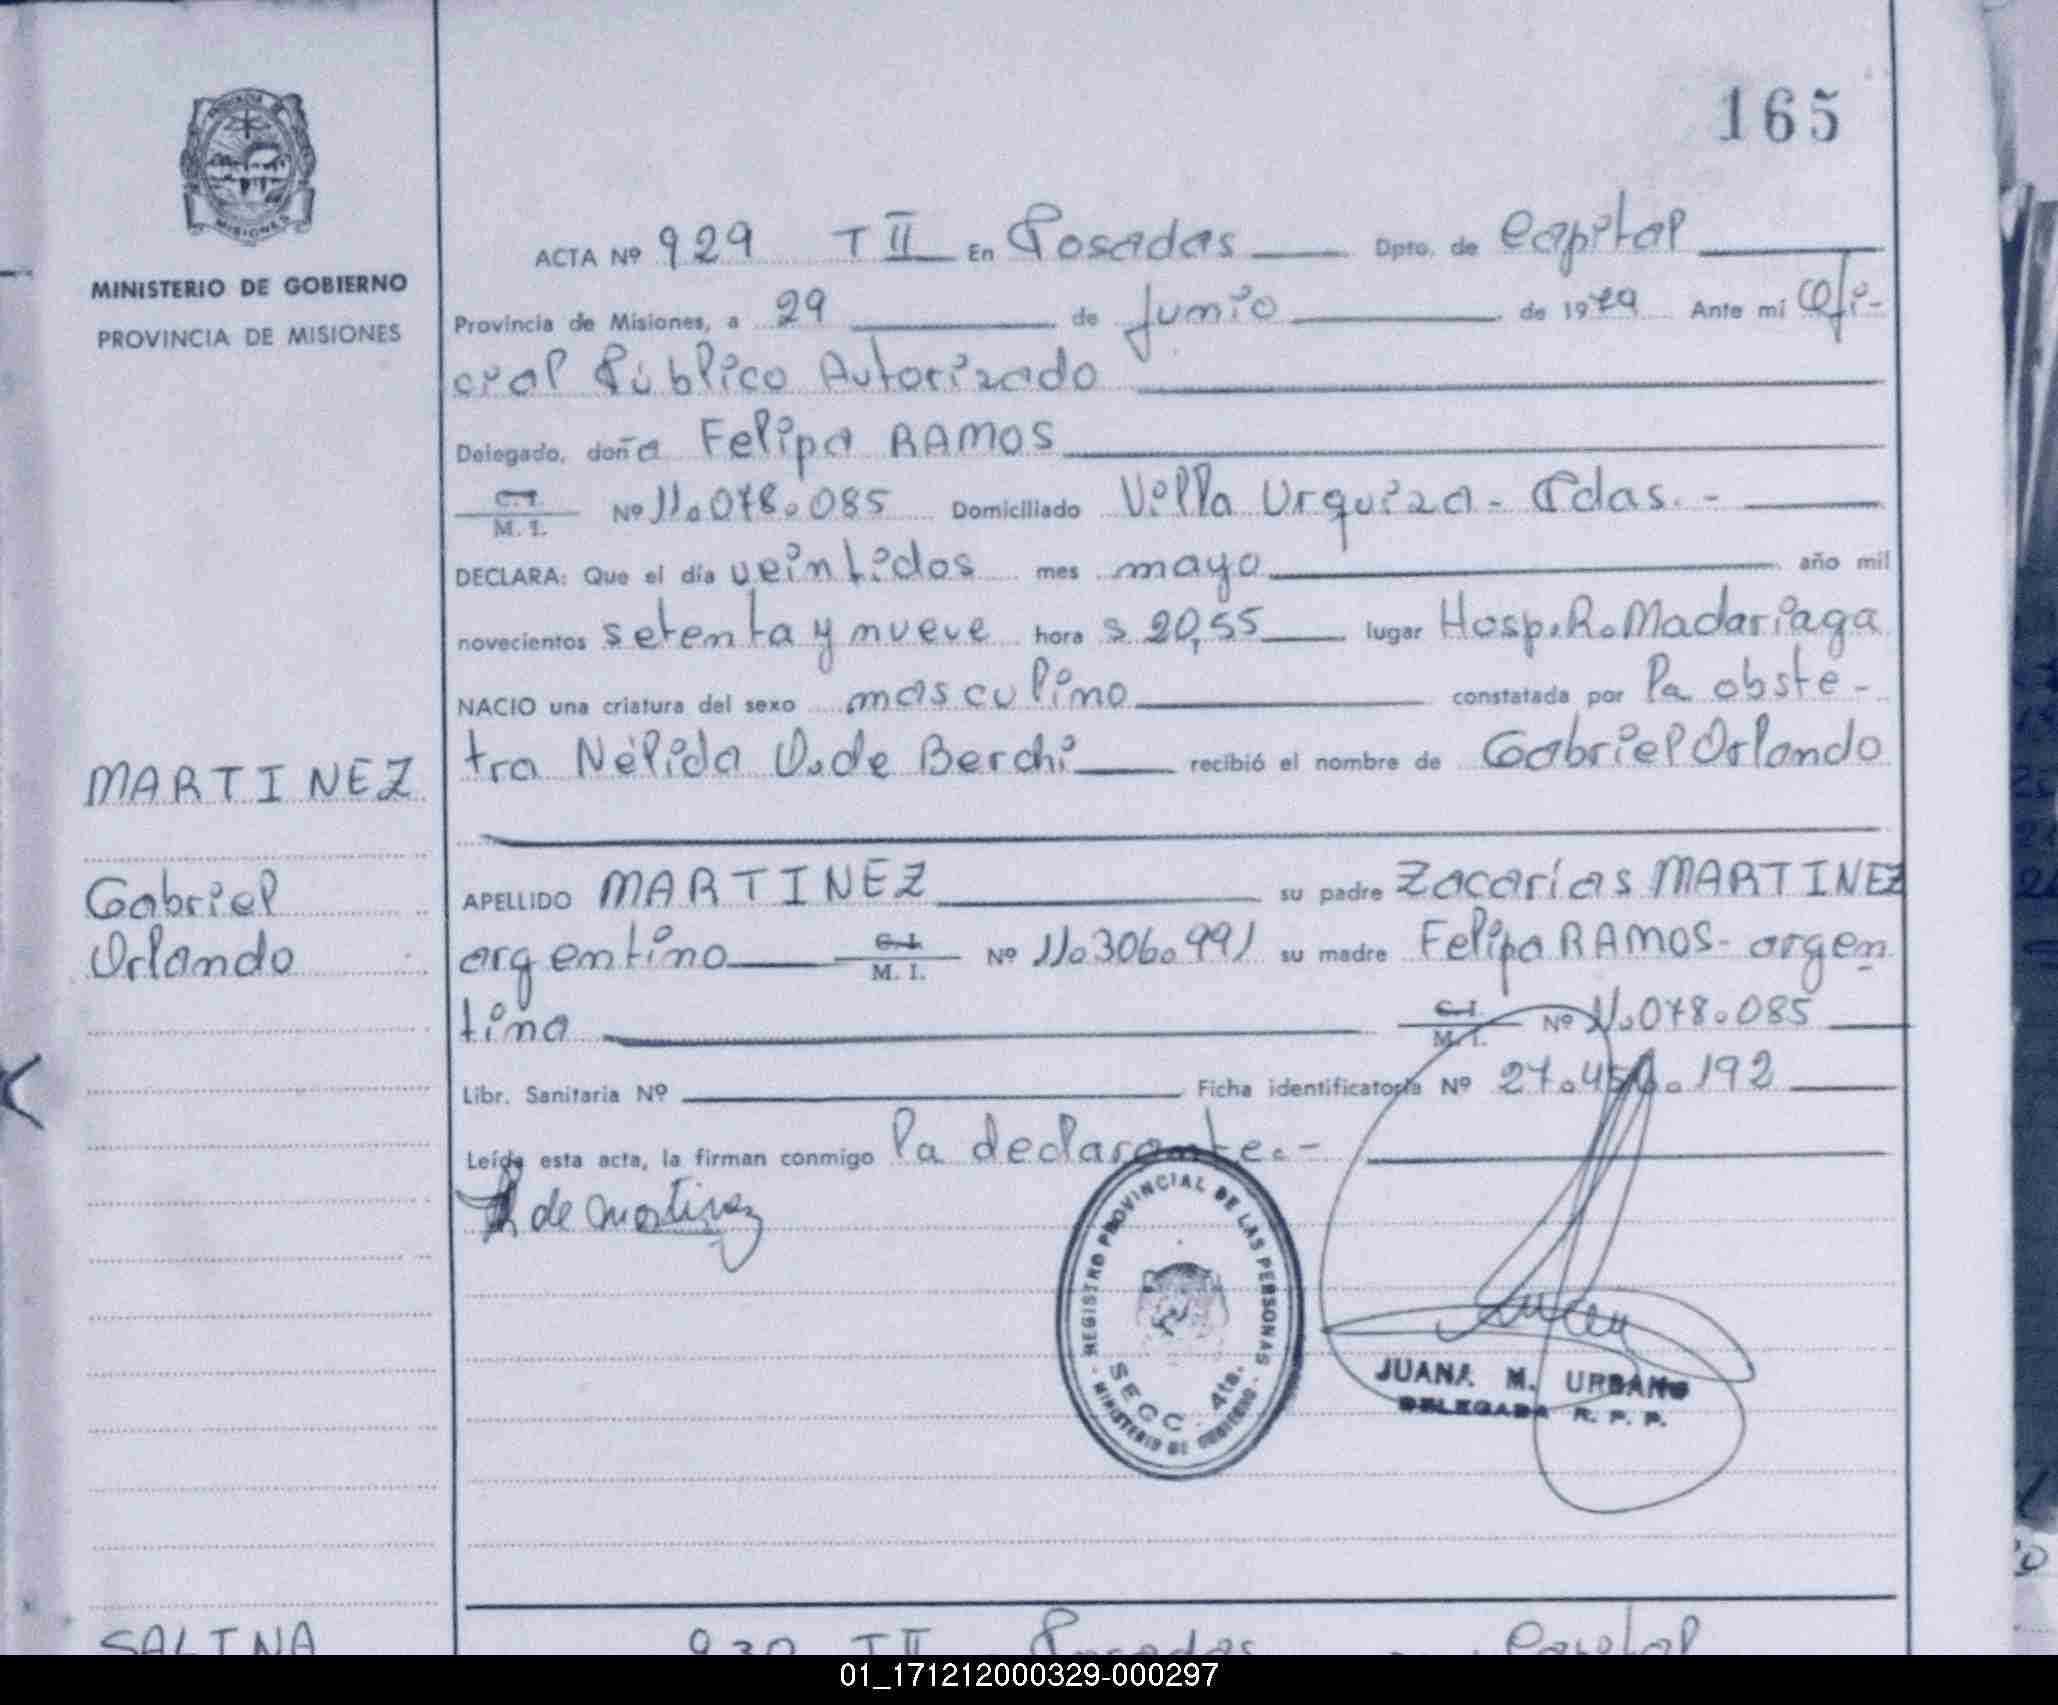 165
MINISTERIO DE GOBIERNO
PROVINCIA DE MISIONES
ACTA Nº 929 T II En Posadas Dpto. de Capital
Provincia de Misiones, a 29 de Junio de 1979 Ante mi Ofi-
cial Público Autorizado
Delegado, doña Felipa RAMOS
C.I. M. I. Nº 11.078.085 Domiciliado Villa Urquiza - Pdas. -
DECLARA: Que el día veintidos mes mayo año mil
novecientos setenta y nueve hora s 20,55 lugar Hosp. R. Madariaga
NACIO una criatura del sexo masculino constatada por la obste-
tra Nélida V. de Berchi recibió el nombre de Gabriel Orlando
MARTINEZ
Gabriel
Orlando
APELLIDO MARTINEZ su padre Zacarías MARTINEZ
argentino C.I. M. I. Nº 11.306.991 su madre Felipa RAMOS - argen
tina C.I. M. I. Nº 11.078.085
Libr. Sanitaria Nº Ficha identificatoria Nº 27.450.192
Leída esta acta, la firman conmigo la declarante. -
de Martinez
REGISTRO PROVINCIAL DE LAS PERSONAS
SECC. 4ta.
MINISTERIO DE GOBIERNO
JUANA M. URBANO
DELEGADA R. P. P.
SALINA 930 T II Posadas Capital
01_171212000329-000297